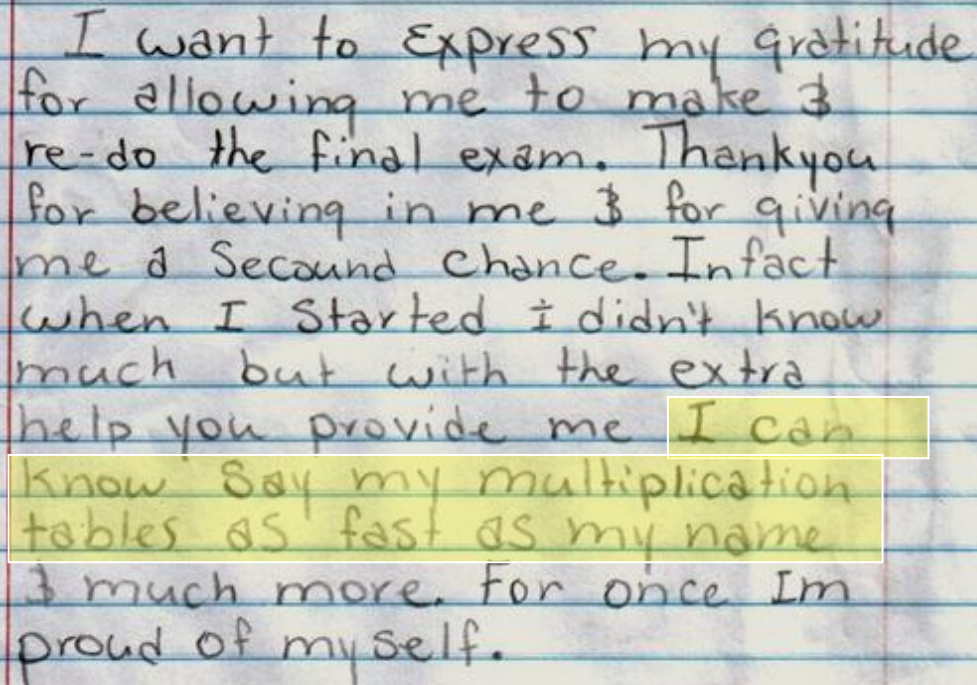 I want to Express my gratitude
for allowing me to make &
re-do the final exam. Thankyou
for believing in me & for giving
me a Secound chance. Infact
when I Started i didn't know
much but with the extra
help you provide me I can
know Say my multiplication
tables as fast as my name
& much more. For once Im
proud of my self.